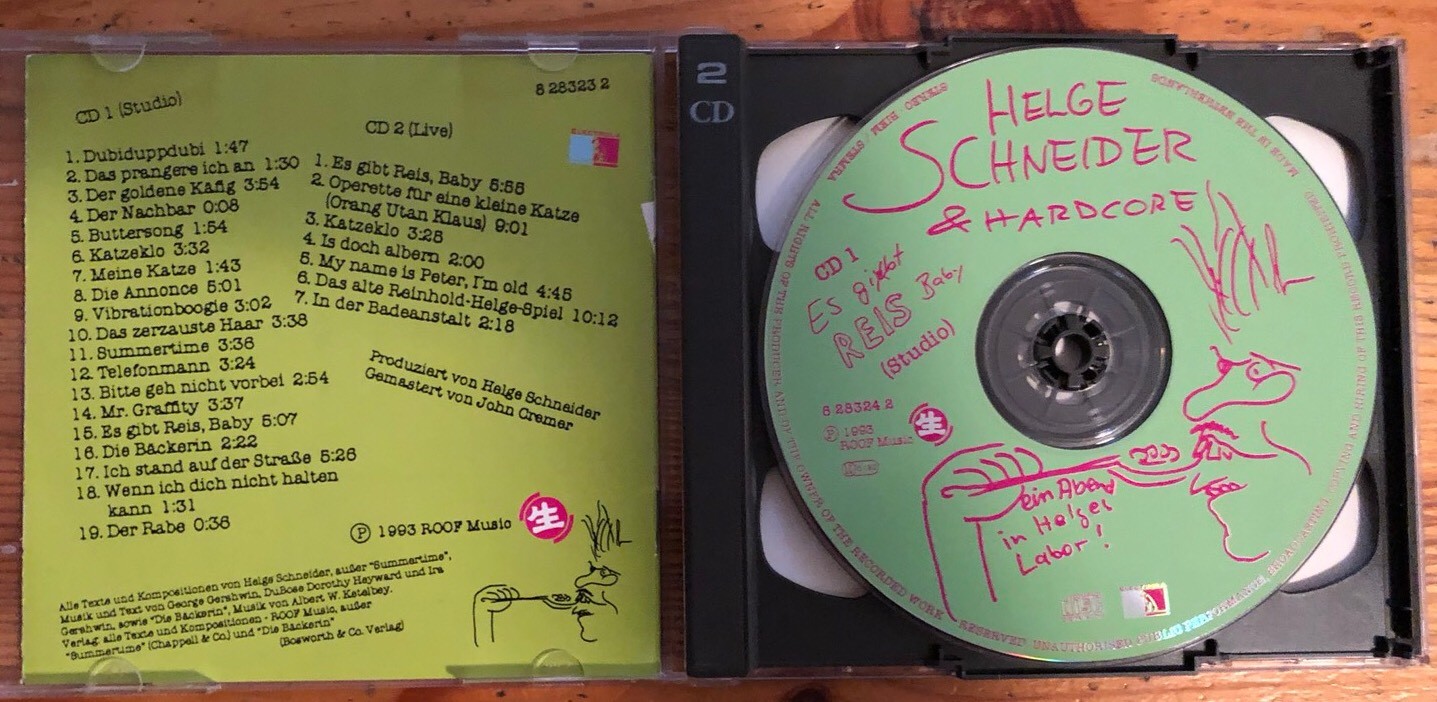 CD 1 (Studio)
1. Dubiduppdubi 1:47
2. Das prangere ich an 1:30
3. Der goldene Käfig 3:54
4. Der Nachbar 0:08
5. Buttersong 1:54
6. Katzeklo 3:32
7. Meine Katze 1:43
8. Die Annonce 5:01
9. Vibrationboogie 3:02
10. Das zerzauste Haar 3:38
11. Summertime 3:36
12. Telefonmann 3:24
13. Bitte geh nicht vorbei 2:54
14. Mr. Graffity 3:37
15. Es gibt Reis, Baby 5:07
16. Die Bäckerin 2:22
17. Ich stand auf der Straße 5:26
18. Wenn ich dich nicht halten
kann 1:31
19. Der Rabe 0:36
8 28323 2
CD 2 (Live)
1. Es gibt Reis, Baby 5:55
2. Operette für eine kleine Katze
(Orang Utan Klaus) 9:01
3. Katzeklo 3:28
4. Is doch albern 2:00
5. My name is Peter, I'm old 4:45
6. Das alte Reinhold-Helge-Spiel 10:12
7. In der Badeanstalt 2:18
Produziert von Helge Schneider
Gemastert von John Cremer
Ⓟ 1993 ROOF Music
生
Alle Texte und Kompositionen von Helge Schneider, außer "Summertime",
Musik und Text von George Gershwin, DuBose Dorothy Heyward und Ira
Gershwin, sowie "Die Bäckerin", Musik von Albert W. Ketelbey.
Verlag: alle Texte und Kompositionen - ROOF Music, außer
"Summertime" (Chappell & Co) und "Die Bäckerin"
(Bosworth & Co. Verlag)
2
CD
HELGE
SCHNEIDER
& HARDCORE
CD 1
Es gibt
REIS Baby
(Studio)
8 28324 2
Ⓟ 1993
ROOF Music
生
ein Abend
in Helges
Labor!
STEREO · BIEM / STEMRA
ALL RIGHTS OF THE PRODUCER AND OF THE OWNER OF THE RECORDED WORK RESERVED. UNAUTHORISED PUBLIC PERFORMANCE, BROADCASTING, COPYING AND HIRING OF THIS RECORD PROHIBITED.
MADE IN THE NETHERLANDS